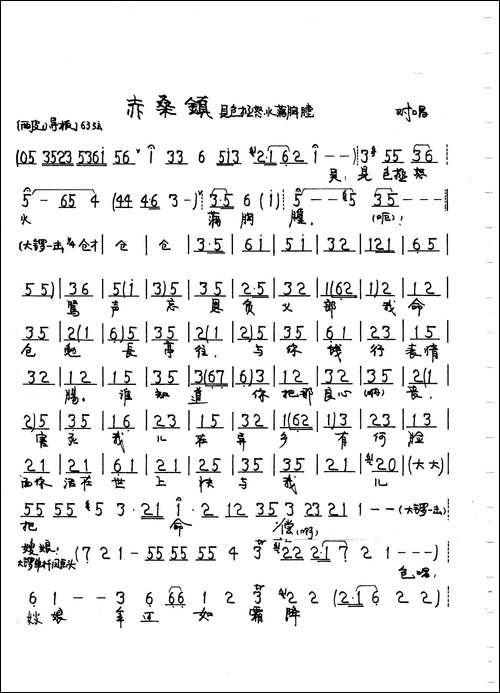 赤桑鎮 見包拯怒火满胸膛 对唱
(西皮)导板) 63弦
(05 3523 5361 56 i 33 6 5i3 2·1 62 i - -) 3 55 36
吴: 見包拯怒
5 - 65 4 (44 4·6 3 -) 3·5 6 (i) 5 - - 5 35 - -
火 满胸膛. (呃)!
(大锣一击 1/4 仓才 | 仓 | 仓 | 3·5 | 6i | 5i | 32 | 121 | 65 |
55) | 36 | 5(i | 3)5 | 35 | 2·5 | 32 | 1(62 | 1)2 | 12 |
罵声忘恩负义部我命
35 | 2(1 | 6)5 | 35 | 2(1 | 2)5 | 35 | 61 | 23 | 15 |
包勉長亭往. 与你饯行表情
32 | 12 | 15 | 35 | 3(67 | 6)3 | 12 | 32 | 35 | 2(1 |
腸. 谁知道你把那良心(呐)丧.
2)5 | 35 | 16 | 23 | 15 | 32 | 1(62 | 1)3 | 23 | 13
害死我儿在异乡有何脸
21 | 21 | 61 | 21 | 25 | 35 | 35 | 21 | 20 | (大大) |
面你活在世上快与我儿
55 55 5 3 · 21 i · 2 12 35 3 23 21 1 - - (大锣一击)
把命偿(啊)
嫂娘!
大锣单杆凤点头 (7 2 1 - 55 55 55 4 3 22 2·1 7 2 1 - - -)
包唱:
6 1 - - 3 6 66 1 2 3 2 2 (2·1 6 2 2)
嫂娘年迈如霜降